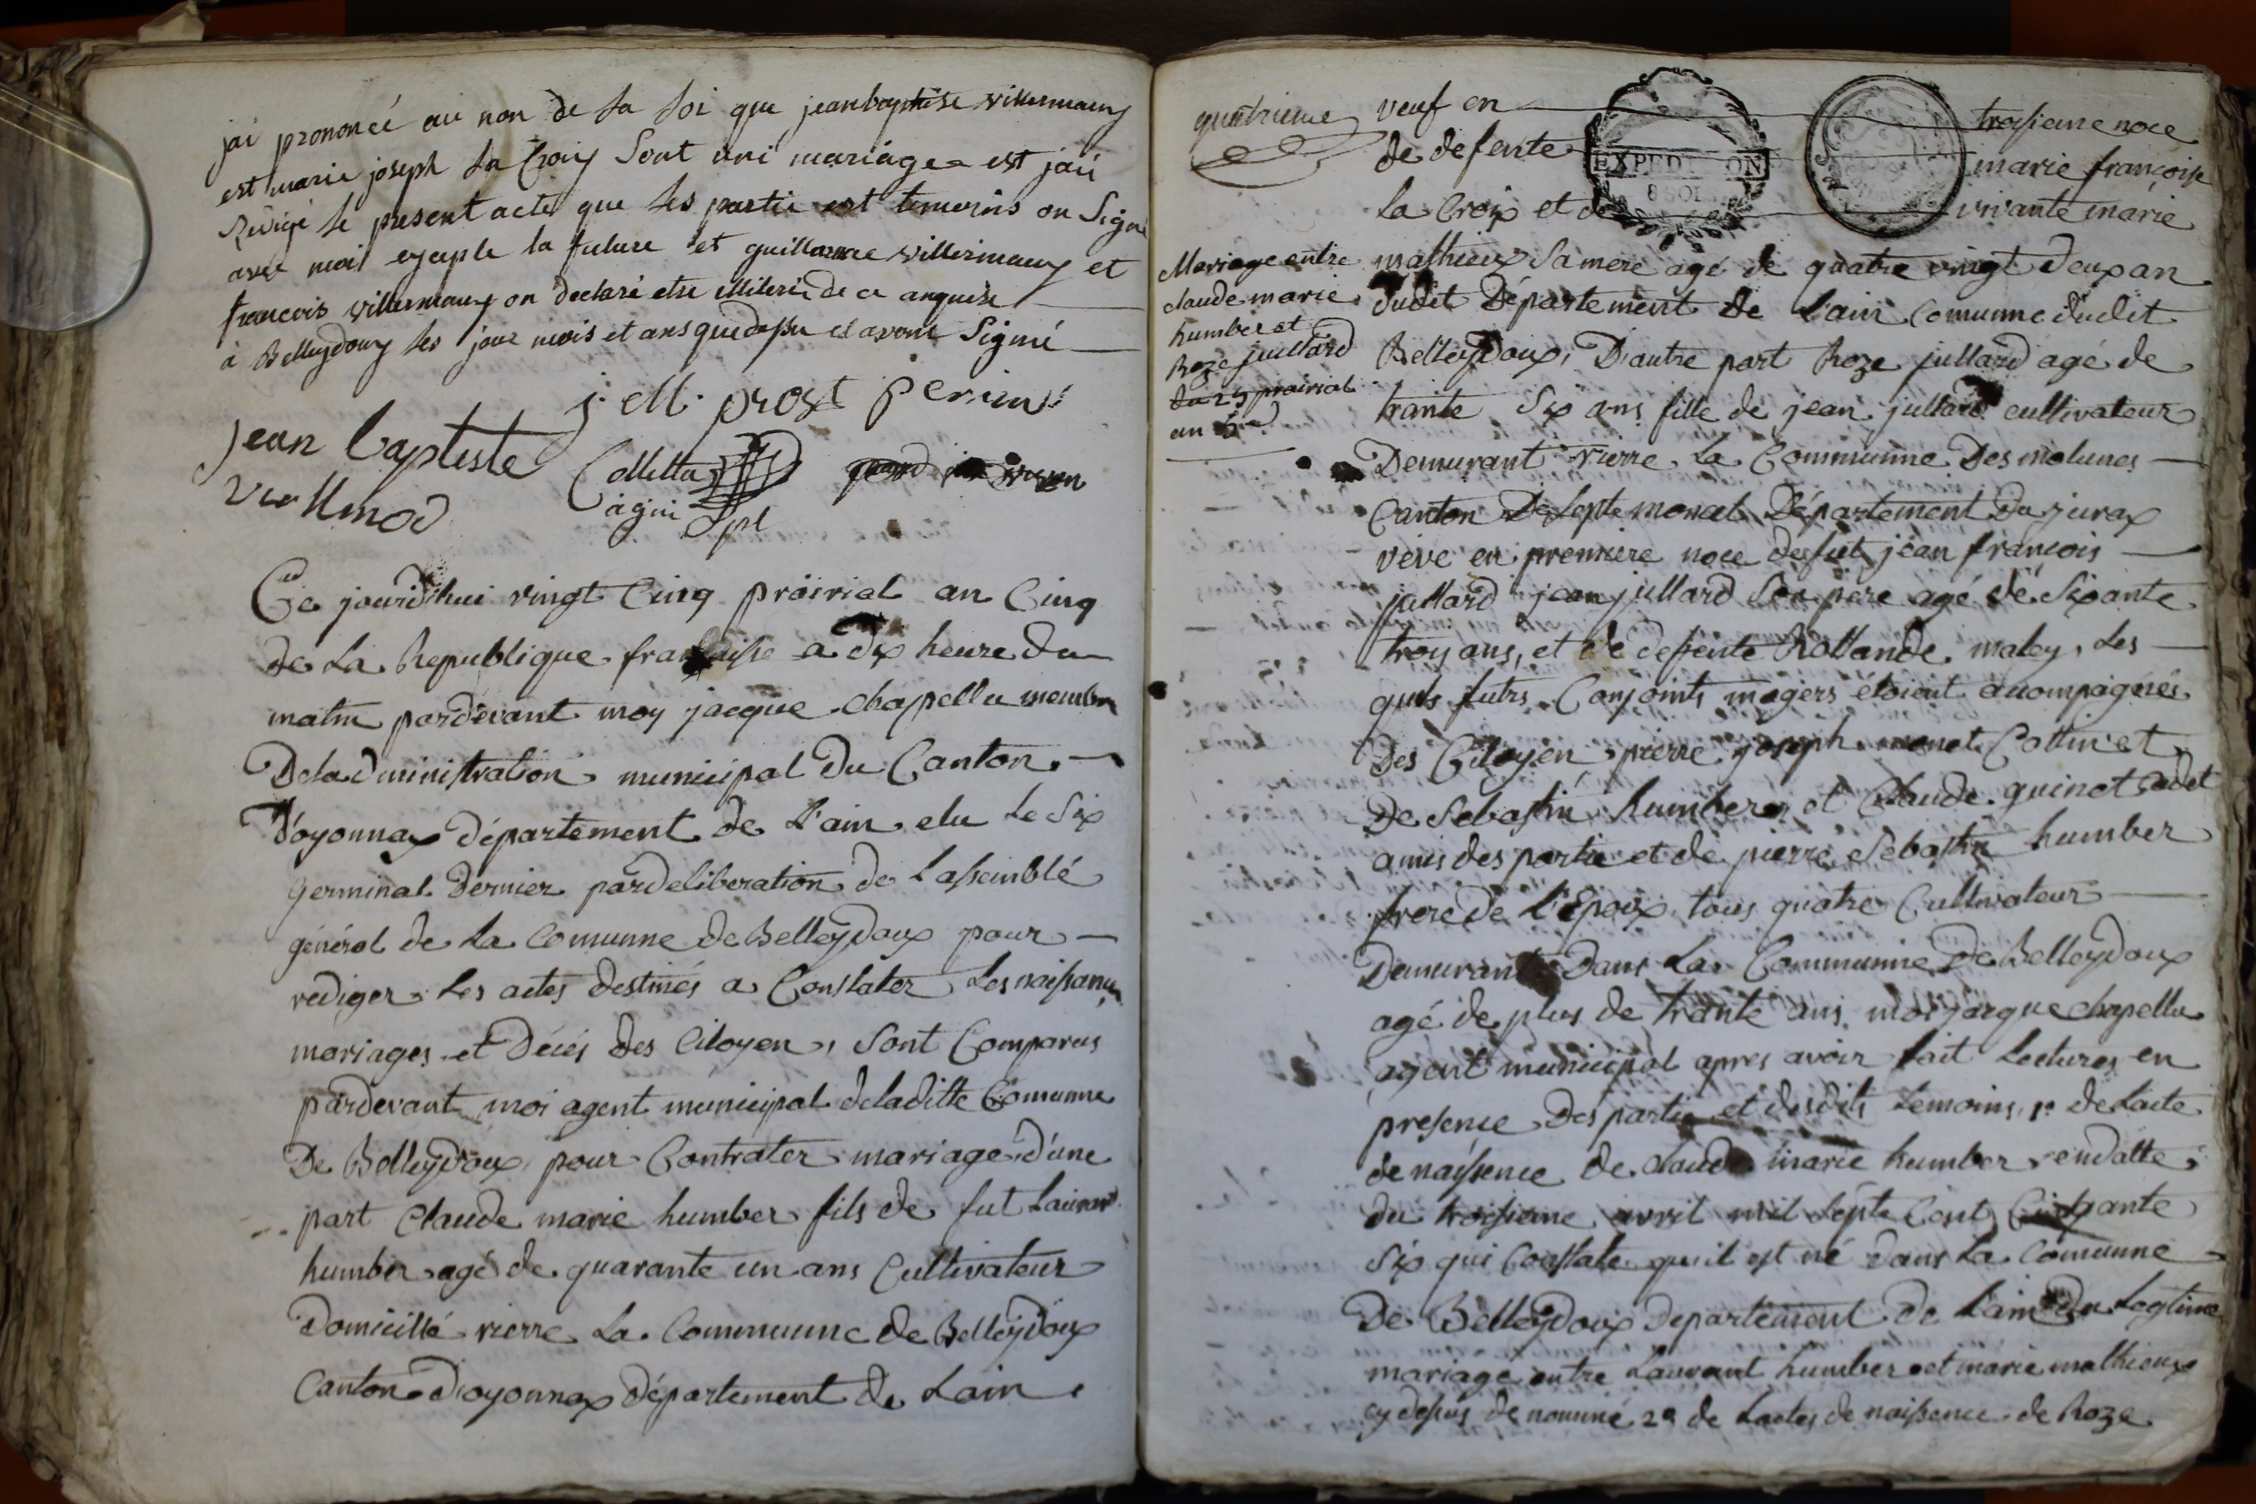 jai prononcé au non de la loi que jeanbaptiste villermaux
est marie joseph la Croix Sont uni mariage est jai
Redigé le present acte que les partie est temoins on Signé
avec moi exeple la future et guillaume villermaux et
francois villermaux on declaré etre illiteré de ce anquise
à Belleydoux les jour mois et ans quedessu et avons Signé
j. M. prost perrin
jean baptiste
Colletta
agin
Ce jourdhui vingt Cinq prairial an Cinq
De La Republique francaise a dix heure du
matin pardevant moy jacque chapellu membre
Deladministration municipal du Canton
D'oyonnax département de L'ain elu Le Six
germinal Dernier pardeliberation de Lassemblé
général de La Comunne de Belleydoux pour
rediger Les actes destinés a Constater Les naissances
mariages et Décés des Citoyen, Sont Comparus
pardevant moi agent municipal deladitte Comunne
De Belleydoux pour Contrater mariage d'une
part Claude marie humber fils de fut Laurant
humber agé de quarante un ans Cultivateur
Domicillé rierre La Communne de Belleydoux
Canton Doyonnax département de Lain
quatrieme
Mariage entre
claude marie
humber et
Roze juillard
du 25 prairial
an 5
veuf en troisieme noce
de defente marie françoise
la Croix et de vivante marie
EXPEDITION
8 SOL
mathieux Sa mere agé de quatre vingt deux an
dudit Département de L'ain Comunne dudit
Belleydoux, D'autre part Roze jullard agé de
trante Six ans fille de jean jullard cultivateur
Demurant rierre La Communne Des molunes
Canton De Septe moncel Département Du jurax
véve en premiere noce defut jean francois
jullard jean jullard Son pere agé de Sixante
troy ans, et de defente Rollande maley, Les
quels futrs Conjoints magers étoient accompagnés
Des Citoyen pierre joseph monet Cottin et
De Sebastin humber et Claude guinot Cadet
amis des partie et de pierre Sebastin humber
frere de L'Epoux tous quatre Cultivateur
Demurant Dans La Communne De Belleydoux
agé de plus de trante ans, moi jacque chapellu
agent municipal apres avoir fait Lectures en
presence Des partie et desdits temoins, 1º de Lacte
de naissence de Claude marie humber en datte
du troisieme avril mil Septe Cent Cinqante
Six qui Constate qu'il est né Dans La Comunne
De Belleydoux Departement de L'ain du Legtime
mariage entre Laurant humber et marie mathieux
cy desus de nommé 2º de Lactes de naissence de Roze